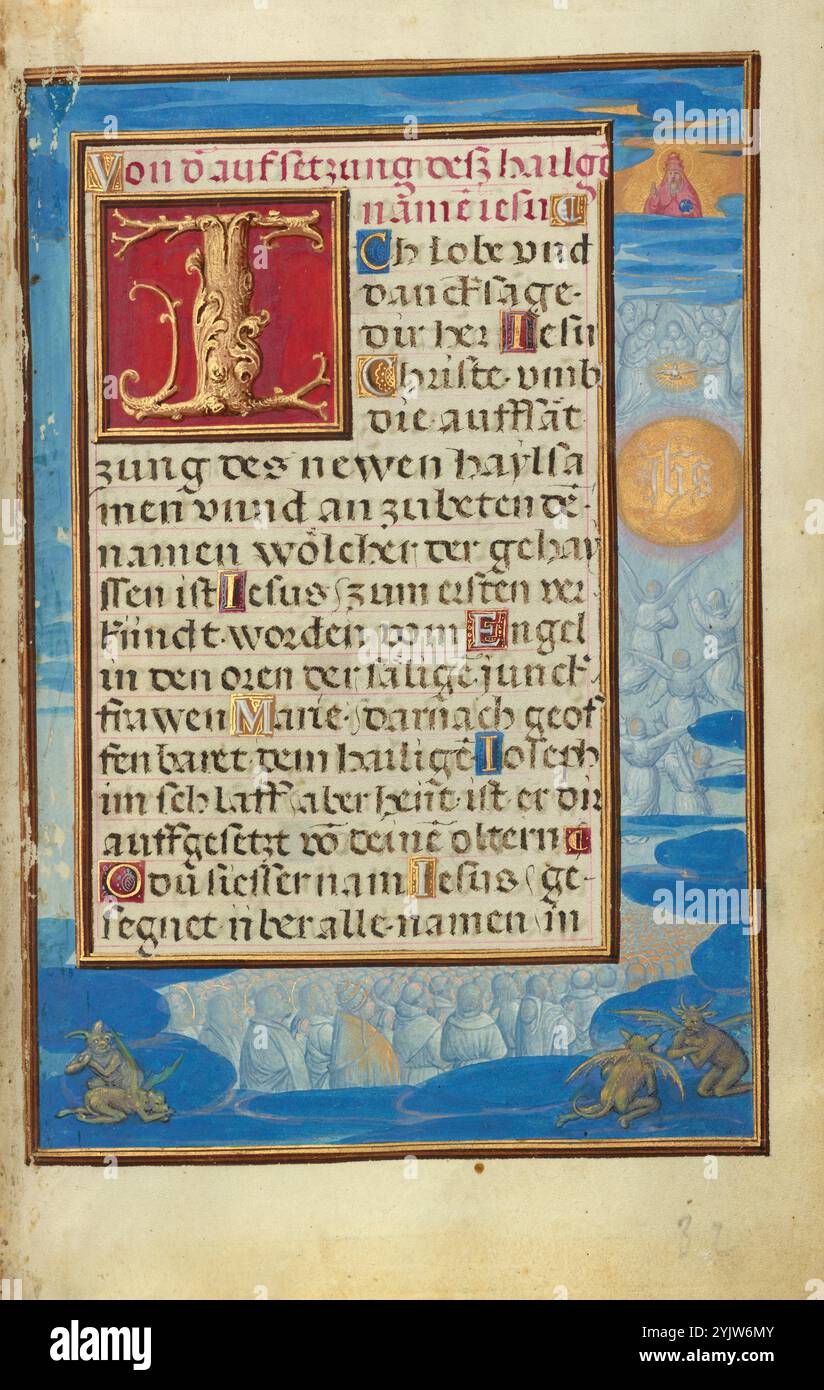 Von d' aufsetzung desz hailgē
namē iesu
Ch lobe vnd
danck sage·
dir her Iesu
Christe· vmb
die· auffsāt
zung des newen haylsa
men vnnd an zu beten dē·
namen wölcher der gehay
ssen ist Iesus/ zum ersten ver
kündt· worden vom Engel
in den oren der sälige junck·
frawen Marie· darnach geof
fenbaret· dem hailigē Ioseph
im schlaff/ aber heüt· ist er dir
auffgesetzt vō deinē öltern
O du siesser nam Iesus/ ge-
segnet über alle· namen/ in
Ihs
32
alamy
Image ID: 2YJW6MY
www.alamy.com